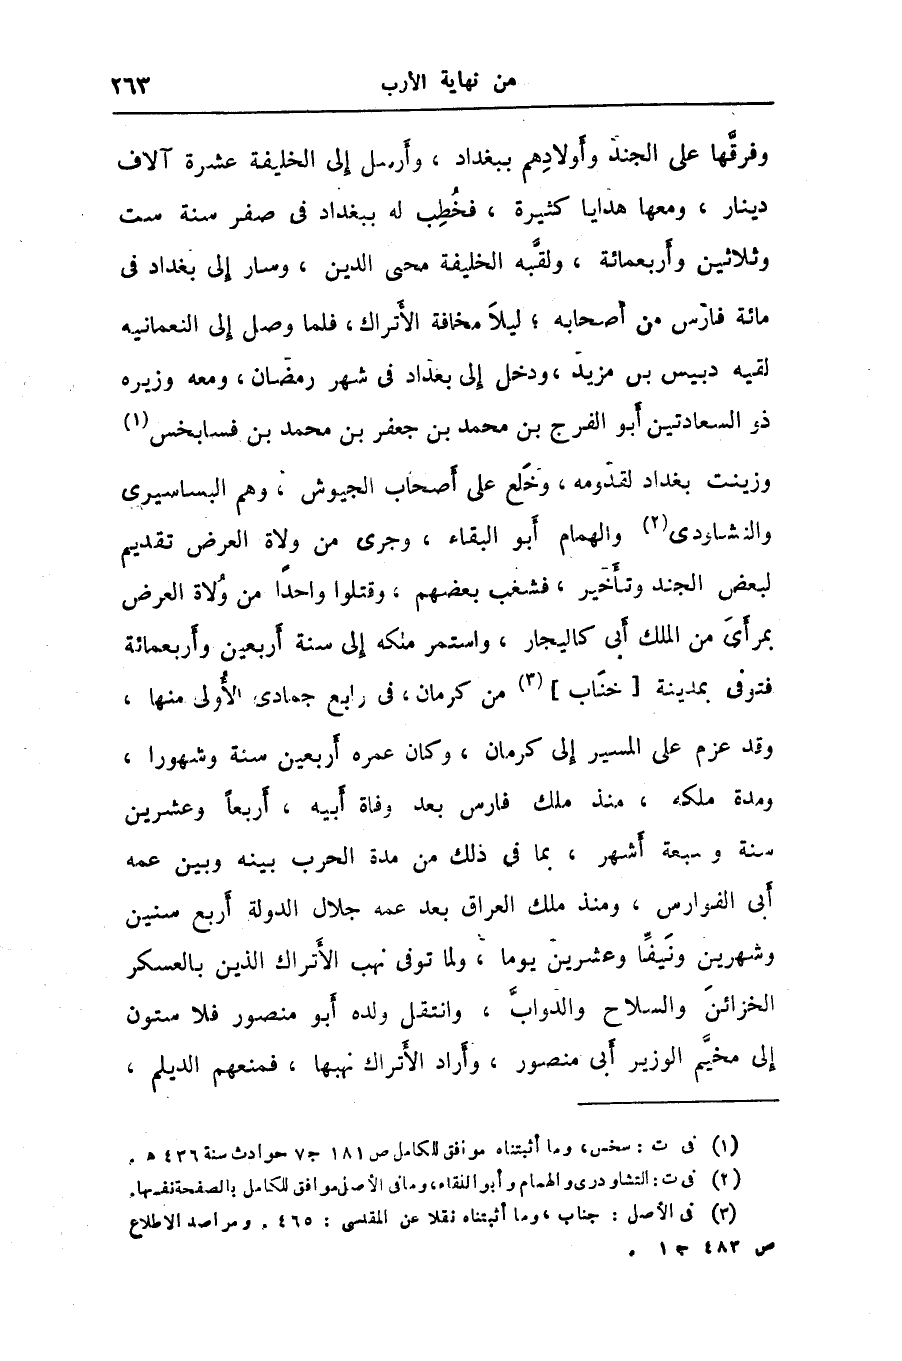 من نهاية الأرب ٢٦٣
وفرقَّها على الجند وأولادِهم ببغداد ، وأرسل إلى الخليفة عشرة آلاف
دينار ، ومعها هدايا كثيرة ، فخُطِب له ببغداد فى صفر سنة ست
وثلاثين وأربعمائة ، ولقَّبه الخليفة محى الدين ، وسار إلى بغداد فى
مائة فارس من أصحابه ؛ ليلاً مخافة الأتراك ، فلما وصل إلى النعمانيه
لقيه دبيس بن مزيد ، ودخل إلى بغداد فى شهر رمضان ، ومعه وزيره
ذو السعادتين أبو الفرج بن محمد بن جعفر بن محمد بن فسابخس (١)
وزينت بغداد لقدومه ، وخَلع على أصحاب الجيوش ، وهم البساسيرى
والنشاودى (٢) والهمام أبو البقاء ، وجرى من ولاة العرض تقديم
لبعض الجند وتأخير ، فشغب بعضهم ، وقتلوا واحدًا من وُلاة العرض
بمرأىَ من الملك أبى كاليجار ، واستمر ملكه إلى سنة أربعين وأربعمائة
فتوفى بمدينة [ خنَّاب ] (٣) من كرمان ، فى رابع جمادى الأُولى منها ،
وقد عزم على المسير إلى كرمان ، وكان عمره أربعين سنة وشهورا ،
ومدة ملكه ، منذ ملك فارس بعد وفاة أبيه ، أربعاً وعشرين
سنة وسبعة أشهر ، بما فى ذلك من مدة الحرب بينه وبين عمه
أبى الفوارس ، ومنذ ملك العراق بعد عمه جلال الدولة أربع سنين
وشهرين ونَيفًّا وعشرين يوما ، ولما توفى نهب الأتراك الذين بالعسكر
الخزائنَ والسلاح والدوابَّ ، وانتقل ولده أبو منصور فلا ستون
إلى مخيَّم الوزير أبى منصور ، وأراد الأتراك نهبها ، فمنعهم الديلم ،
(١) فى ت : سخس ، وما أثبتناه موافق للكامل ص ١٨١ ج٧ حوادث سنة ٤٣٦ ه .
(٢) فى ت : التشاودرى والهمام وأبو اللقاء ، ومافى الأصل موافق للكامل بالصفحة نفسها .
(٣) فى الأصل : جناب ، وما أثبتناه نقلا عن المقدسى : ٤٦٥ . ومراصد الاطلاع
ص ٤٨٣ ج ١ .